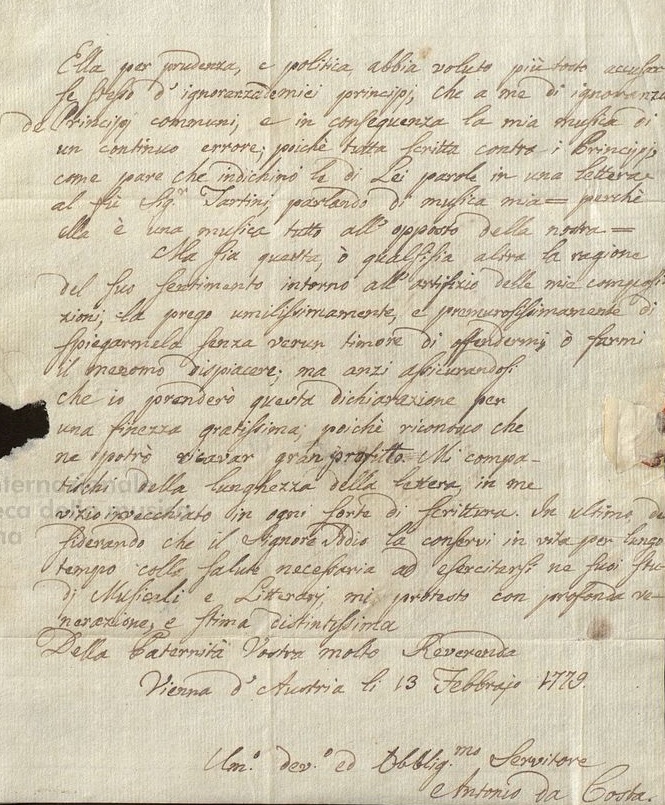 Ella per prudenza, e politica abbia voluto più tosto accusar
se stesso d'ignoranza de miei principj, che a me di ignoranza
de Principj communi, e in conseguenza la mia musica di
un continuo errore; poichè tutta scritta contro i Principj,
come pare che indichino le di Lei parole in una lettera
al fù Sig.r Tartini, parlando di musica mia = perchè
ella è una musica tutto all'opposto della nostra =
Ma sia questa, ò qualsisia altra la ragione
del suo sentimento intorno all'artifizio delle mie composi-
zioni, la prego umilissimamente, e premurosissimamente di
spiegarmela senza verun timore di offendermi, ò farmi
il menomo dispiacere; ma anzi assicurandosi
che io prenderò questa dichiarazione per
una finezza gratissima, poichè riconosco che
ne potrò ricavar gran profitto. Mi compa-
tischi della lunghezza della lettera in me
vizio invecchiato in ogni sorte di scrittura. In ultimo de-
siderando che il Signore Iddio la conservi in vita per lungo
tempo colla salute necessaria ad esercitarsi ne suoi stu-
dj Musicali e Litterarj mi protesto con profonda ve-
nerazione, e stima distintissima
Della Paternità Vostra molto Reverenda
Vienna d'Austria li 13 Febbrajo 1779.
Um.o dev.o ed Obblig.mo Servitore
Antonio da Costa.